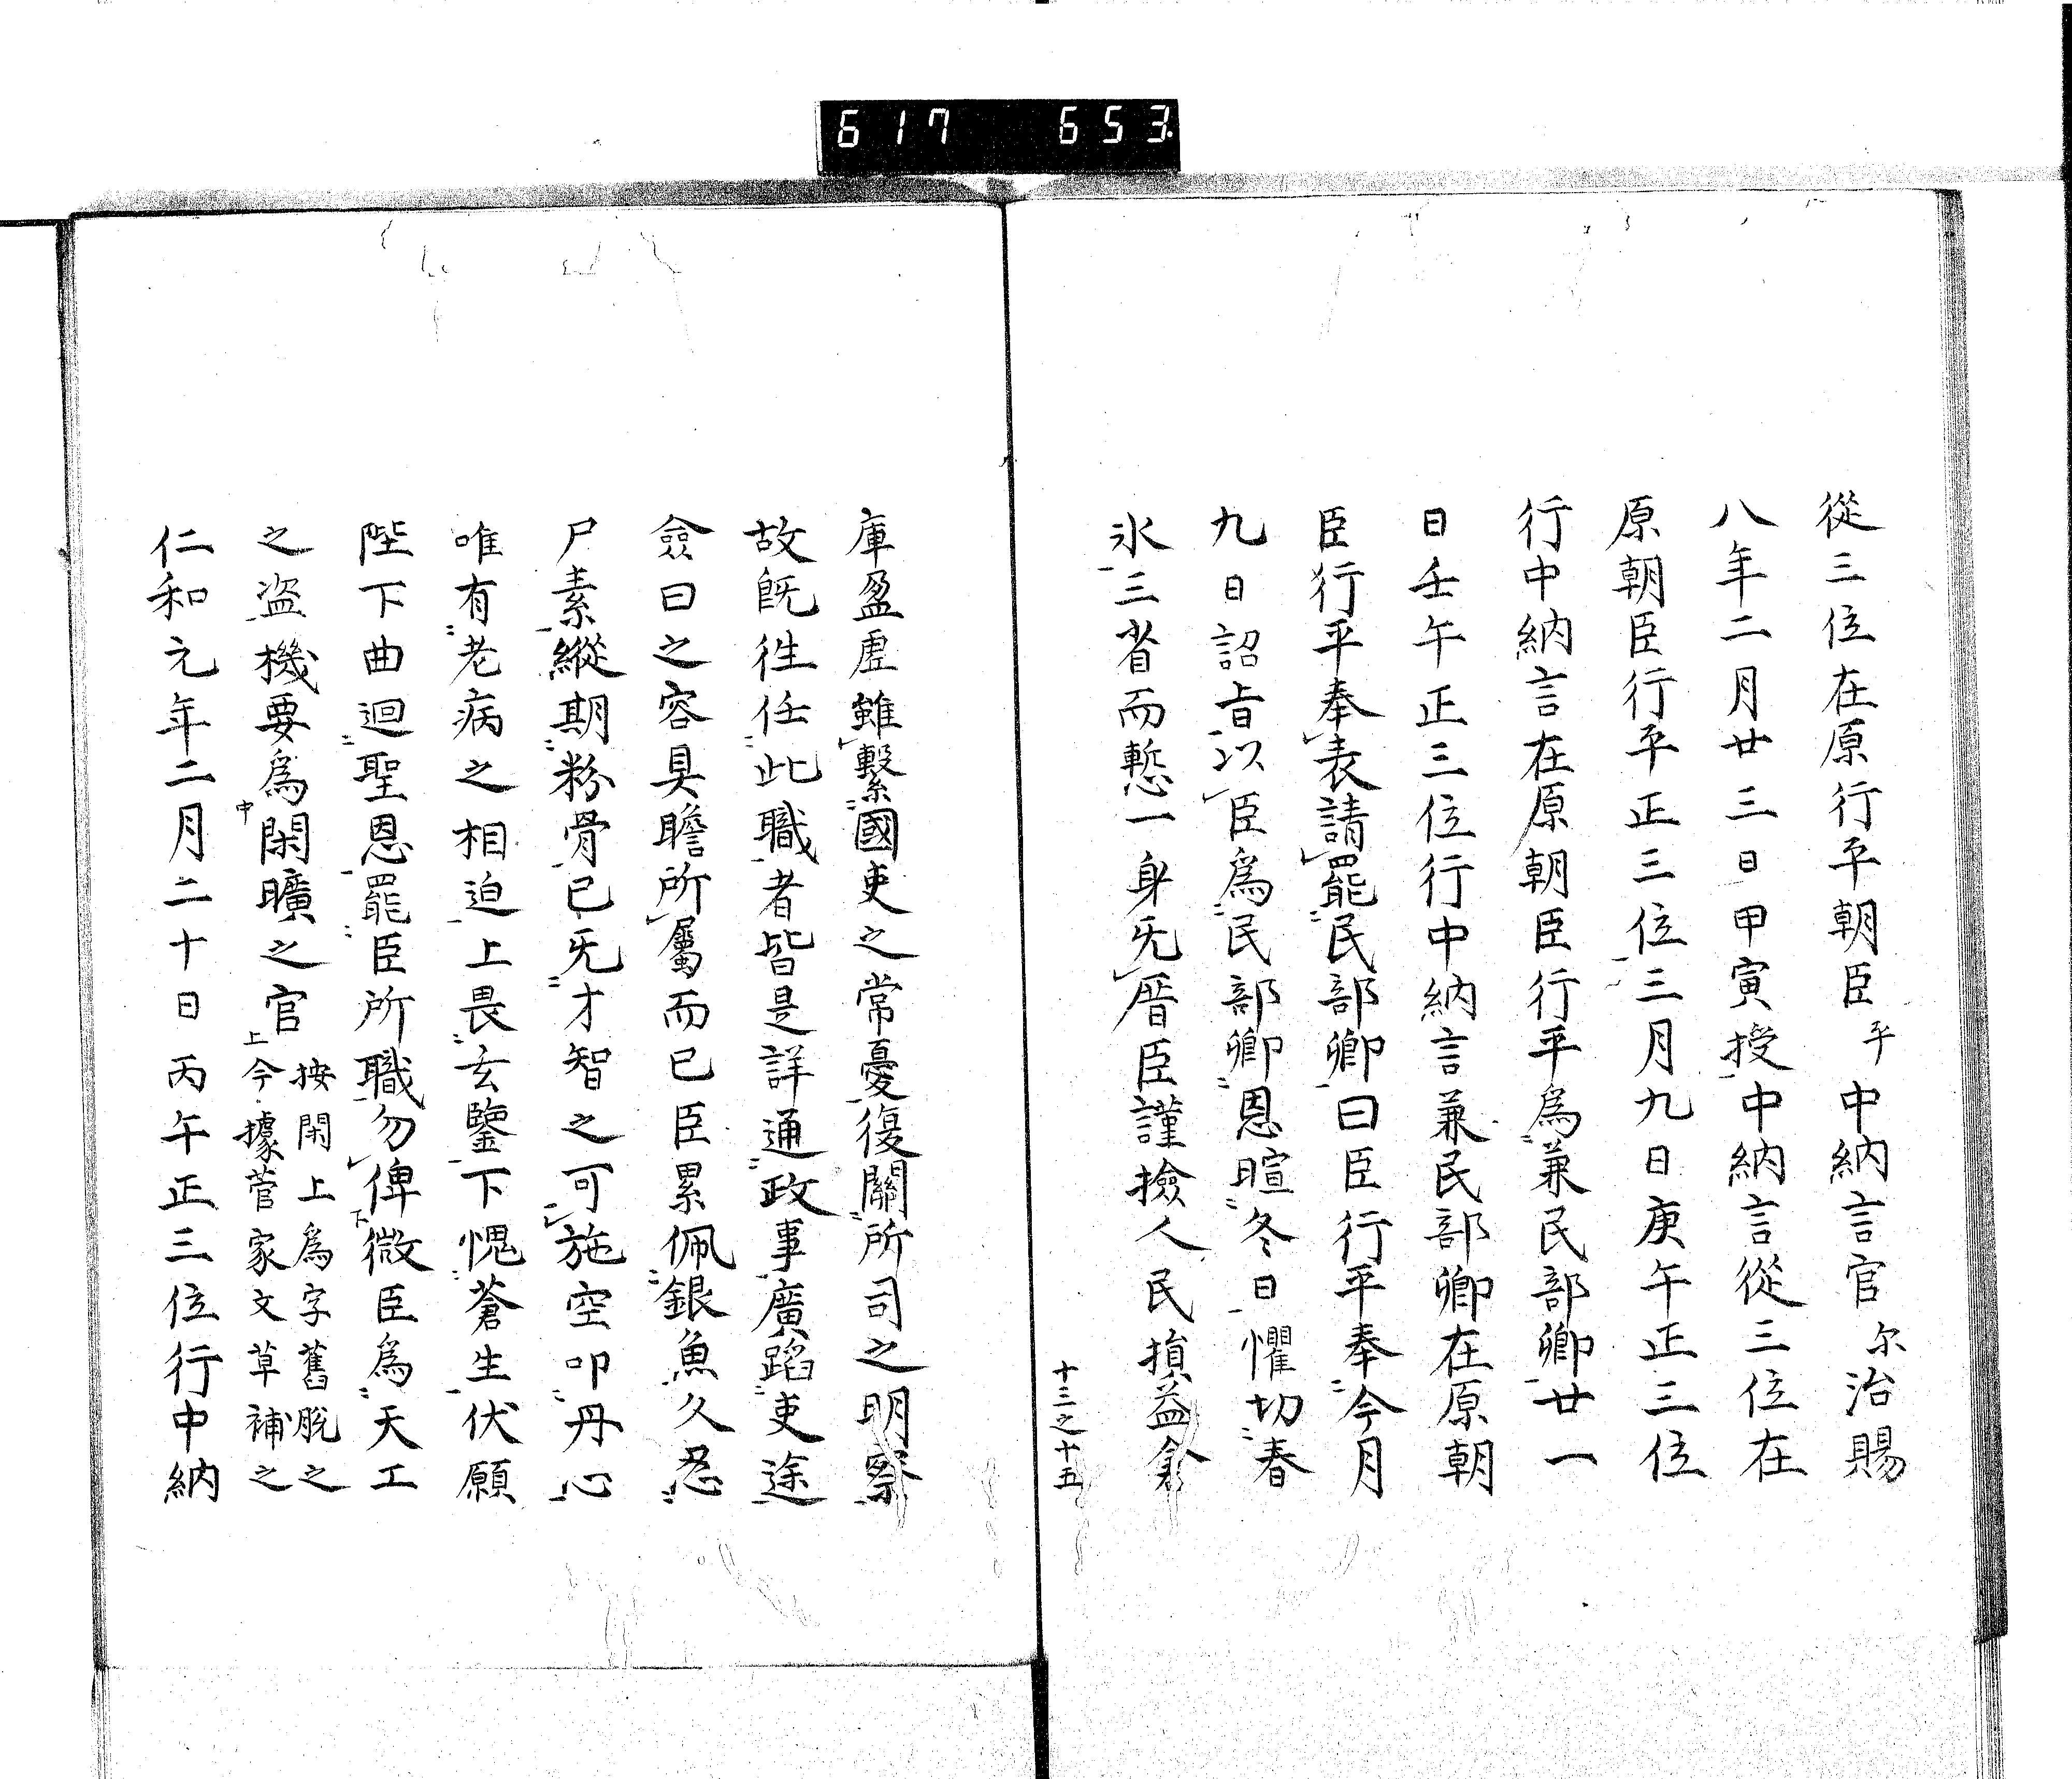 617 653
從三位在原行平朝臣乎中納言官尓治賜
八年二月廿三日甲寅授中納言從三位在
原朝臣行平正三位三月九日庚午正三位
行中納言在原朝臣行平爲兼民部卿廿一
日壬午正三位行中納言兼民部卿在原朝
臣行平奉表請罷民部卿曰臣行平奉今月
九日詔旨以臣爲民部卿恩暄冬日懼切春
氷三省而慙一身旡厝臣謹撿人民損益倉
十三之十五
庫盈虛雖繫國吏之常憂復關所司之明察
故旣徃任此職者皆是詳通政事廣蹈吏途
僉曰之容具瞻所屬而已臣累佩銀魚久忍
尸素縱期粉骨已旡才智之可施空叩丹心
唯有老病之相迫上畏玄鑒下愧蒼生伏願
陛下曲迴聖恩罷臣所職勿俾微臣爲天工
之盗機要爲閑曠之官按閑上爲字舊脫之今據菅家文草補之
仁和元年二月二十日丙午正三位行中納